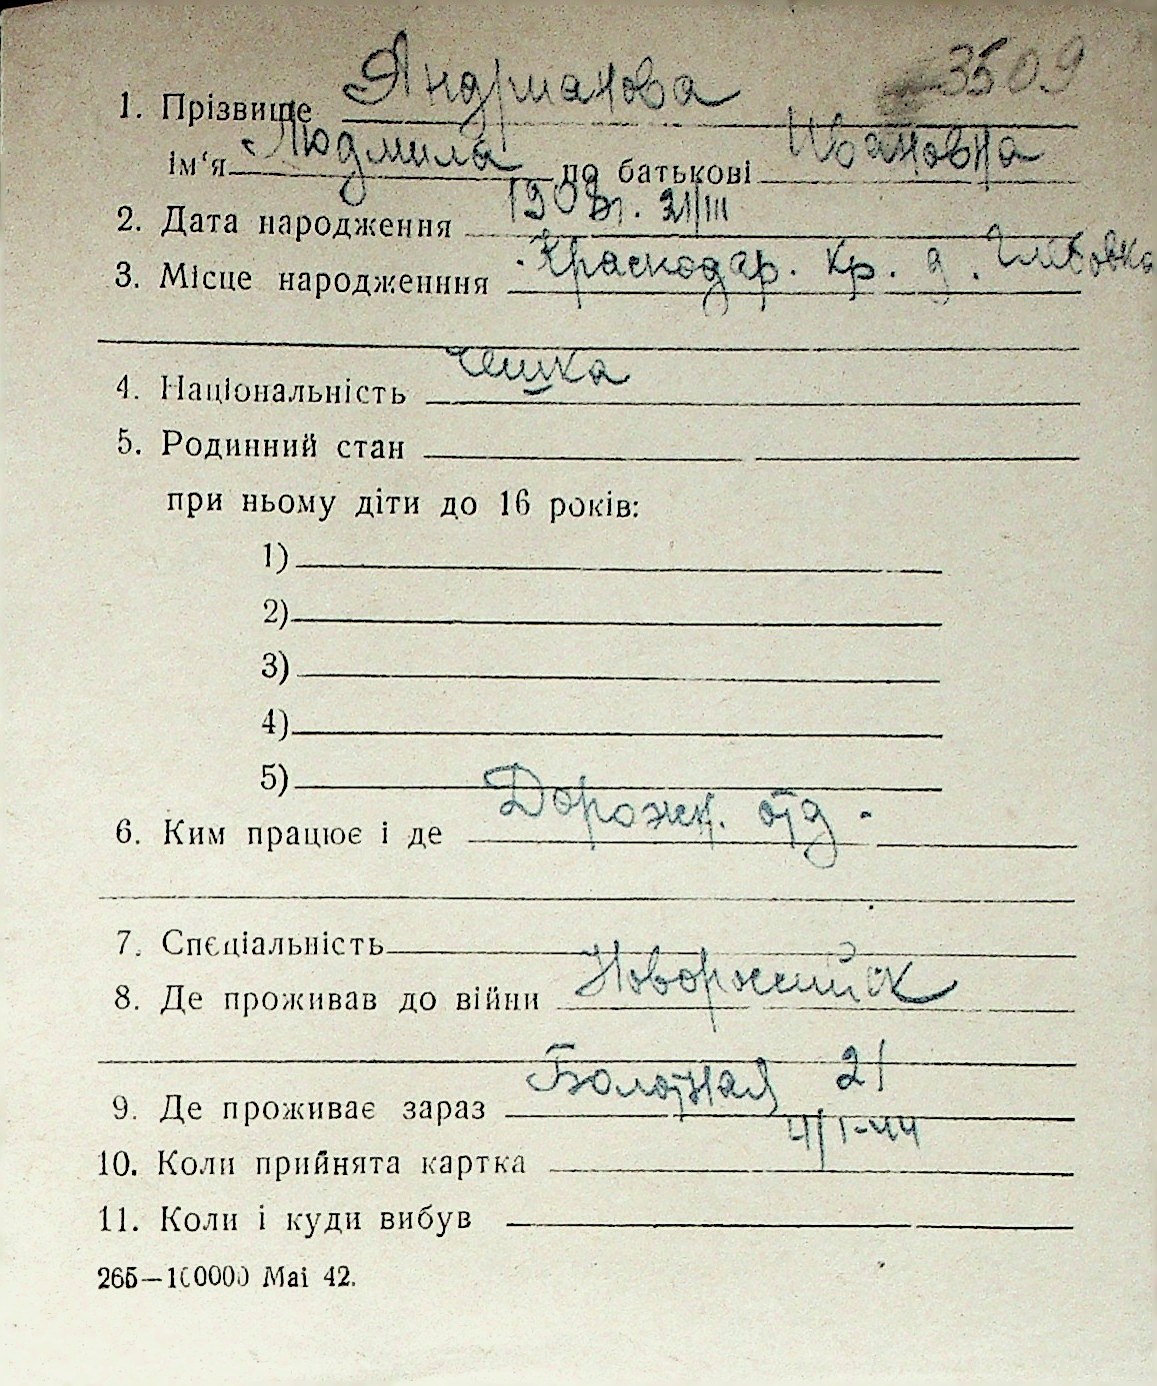 3509
1. Прізвище Яндрманова
ім'я Людмила по батькові Ивановна
2. Дата народження 1903г. 21/III
3. Місце народженння Краснодар. кр. д. Глебовка
4. Національність чешка
5. Родинний стан
при ньому діти до 16 років:
1)
2)
3)
4)
5)
6. Ким працює і де Дорожн. отд.
7. Спєціальність
8. Де проживав до війни Новоросийск
9. Де проживає зараз Болотная 21
10. Коли прийнята картка 4/I-44
11. Коли і куди вибув
265—100000 Mai 42.